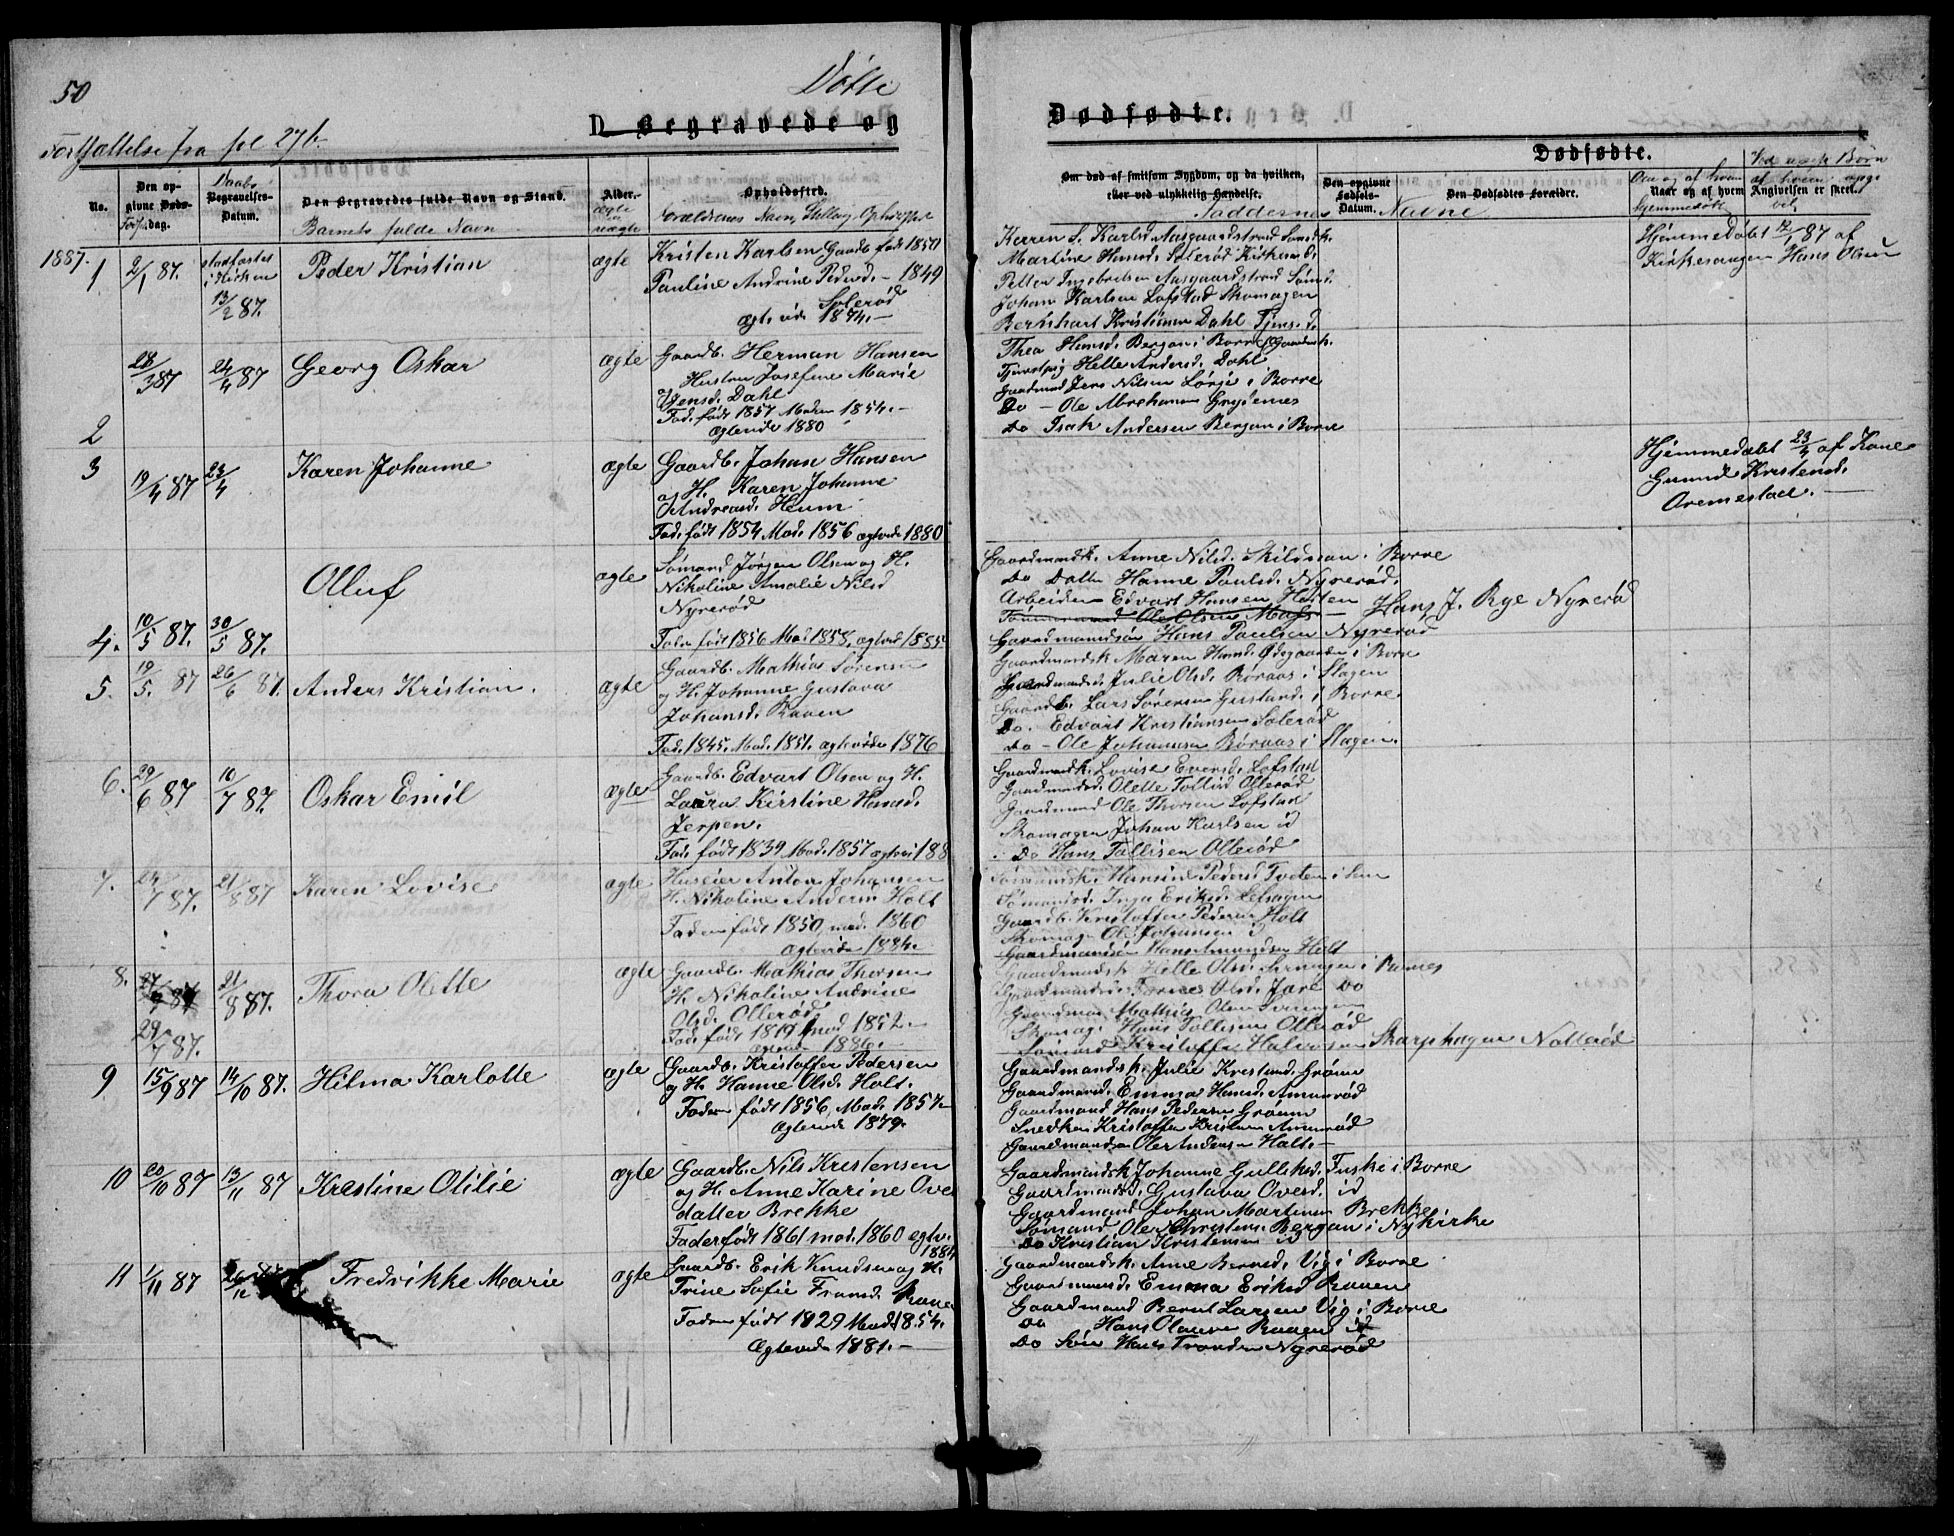 50
Døtte
D. Begravede og
Dødfødte.
Fortsættelse fra fol 27b.
Dødfødte.
No.
Den opgivne Døds-dag.
Daabs
Begravelses-Datum.
Den Begravedes fulde Navn og Stand.
Barnets fulde Navn
Alder.
ægte
uægte
Opholdssted.
Forældrenes Navn, Stilling, Opholdssted
Om død af smitsom Sygdom, og da hvilken,
eller ved ulykkelig Hændelse.
Faddernes Navne
Den opgivne Fødsels-Datum.
Den Dødfødtes Forældre.
Om og af hvem
Naar og af hvem
hjemmedøbt
Angivelsen er skeet.
1887.
1
2/1 87.
stadfæstet
i Kirken
13/2 87.
Peder Kristian
ægte
Kristen Karlsen Gaardb. født 1850
Pauline Andrine Pedersd. - 1849
Solerød
Ægt. vid. 1874. -
Karren S. Karlsd. Aasgaardstrand Sømdk.
Martine Hansd. Solerød Kirkesd.
Petter Ingebretsen Aasgaardstrand Sømd.
Johan Karlsen Lofstad Skomager
Bernhart Kristiansen Dahl Tjens.d.
Hjemmedøbt 12/1 87 af
Kirkesanger Hans Olsen
2
28/3 87
24/4 87
Georg Oskar
ægte
Gaardb. Herman Hansen
Hustru Josefine Marie
Jensd. Dahl
Fad. født 1857 Moder 1854. -
Ægtevide 1880
Thea Hansd. Bergan i Borre Gaardmk.
Tjenstpig Helle Andersd. Dahl
Gaardmand Jens Nilsen Lørje i Borre
Do - Ole Abrahamsen Grytenes
Do Isak Andersen Bergan i Borre
3
19/4 87
23/4
Karen Johanne
ægte
Gaardb. Johan Hansen
og H. Karen Johanne
Andreasd. Heum
Fad. født 1854 Mod. 1856 ægtvide 1880
Hjemmedøbt 23/4 af Kone
Gunnild Kristensd.
Oremestad. -
4.
10/5 87.
30/5 87.
Olluf
ægte
Sømand Jørgen Olsen og H.
Nikoline Amalie Nilsd
Nyrerød
Fader født 1856 Mod 1858, ægtvid 1885
Gaardmandsk. Anne Nilsd. Skildsaan i Borre
Do Datter Hanne Paulsd. Nyrerød.
Arbeider Edvart Hansen Holten
Tømmermand Ole Olsen Moss -
Hans J. Rye Nyrerød
Gaardmandsøn Hans Paulsen Nyrerød
5.
19/5. 87
26/6 87.
Anders Kristian.
ægte
Gaardb. Mathias Sørensen
og H. Johanne Gustava
Johansd. Raaen
Fad. 1845. Mod. 1851. ægtevide 1876
Gaardmandsk Maren Hansd. Ødegaarden i Borre
Gaardmandsd. Julie Olsd. Røraas i Slagen
Gaardb. Lars Sørensen Gustand. i Borre
Do. Edvart Kristiansen Solerød
Do - Ole Johannesen Røraas i Slagen.
6.
29/6 87
10/7 87.
Oskar Emil
ægte
Gaardb. Edvart Olsen og H.
Laura Kirstine Hansd.
Jerpen.
Fad. født 1839 Mod. 1857 ægtvi 188
Gaardmandk. Lovise Eversd. Lofstad
Gaardmandsd. Olette Tollisd Ollerød
Gaardmand Ole Thorsen Lofstad
Skomager Johan Karlsen id
Do Hans Tollisen Ollerød
7.
24/7 87.
21/8 87
Karen Lovise
ægte
Huseier Anton Johansen
H. Nikoline Andersen Holt
Faderen født 1850, mod. 1860
Ægtevide 1884.
Sømandsk. Hansine Pedersd Tveten i Sem
Sømandsd. Inga Eriksd. Lefsagen
Gaardb. Kristoffer Pedersen Holt
Skomager Ole Johansen id
Gaardmandsøn Hans Amundsen Holt
8.
29/7 87.
21/8 87.
Thora Olette
ægte
Gaardb. Mathias Thorsen
H. Nikoline Andrine
Olsd. Ollerød
Fad. født 1819 mod 1852 -
Ægtevide 1886. -
Gaardmandsk. Helle Olsd. Serningen i Ramnes
Gaardmandsd. Torines Olsd. Jare Do
Gaardman Mathis Olsen Serningen
Skomag. Hans Tollisen Ollerød
Sømand Kristoffer Halvorsen Skarphagen Nøtterød
9
15/9 87
14/10 87.
Hilma Karlotte
ægte
Gaardb. Kristoffer Pedersen
og H. Hanne Olsd. Holt.
Faderen født 1856, Mod. 1857.
Ægtevide 1879.
Gaardmandsk. Julie Kristensd. Grøum
Gaardmandsd. Emma Hansd. Amundrød
Gaardmand Hans Pedersen Grøum
Snedker Kristoffer Kristensen Amundrød
Gaardmandsøn Ole Andersen Holt. -
10
20/10 87
13/11 87
Krestine Otilie
ægte
Gaardb. Nils Kristensen
og H. Anne Karine Oves
datter Brekke
Fader født 1861 mod. 1860 egtv.
1884
Gaardmandsk Johanne Gulliksd. Fuske i Borre
Gaardmandsd. Gustava Ovesd. id
Gaardmand Johan Martinsen Brekke
Sømand Ole Kristens. Bergan i Nykirke
Do Kristian Kristensen id
11
1/11 87
26/12
Fredrikke Marie
ægte
Gaardb. Erik Knudsen og H.
Trine Sofie Fransd. Raaen
Faderen født 1829 Mod. 1854.
Ægtevide 1881. -
Gaardmandsk. Anne Berntsd. Vig i Borre
Gaardmandsd. Emma Eriksd Raaen
Gaardmand Bernt Larsen Vig i Borre
Do Hans Olausen Raaen id
Do Søn Hans Trondsen Nyrerød